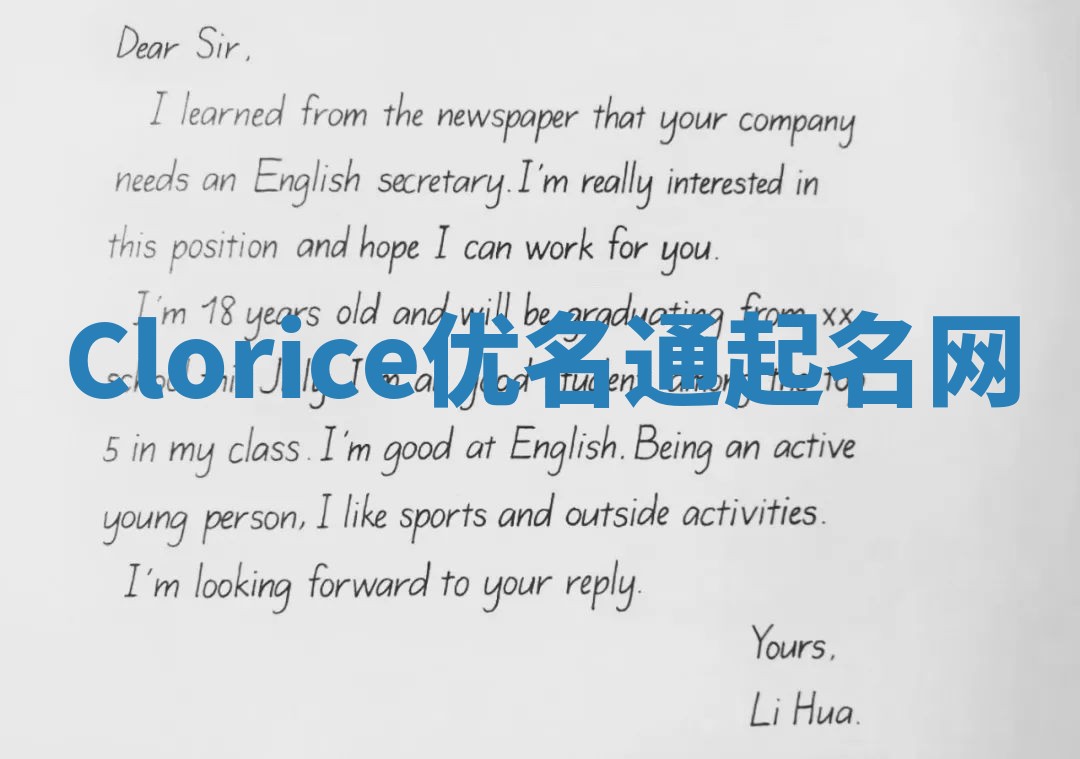 Dear Sir,
I learned from the newspaper that your company
needs an English secretary. I'm really interested in
this position and hope I can work for you.
I'm 18 years old and will be graduating from xx
Clorice优名通起名网
school this July. I'm a good student among the top
5 in my class. I'm good at English. Being an active
young person, I like sports and outside activities.
I'm looking forward to your reply.
Yours,
Li Hua.